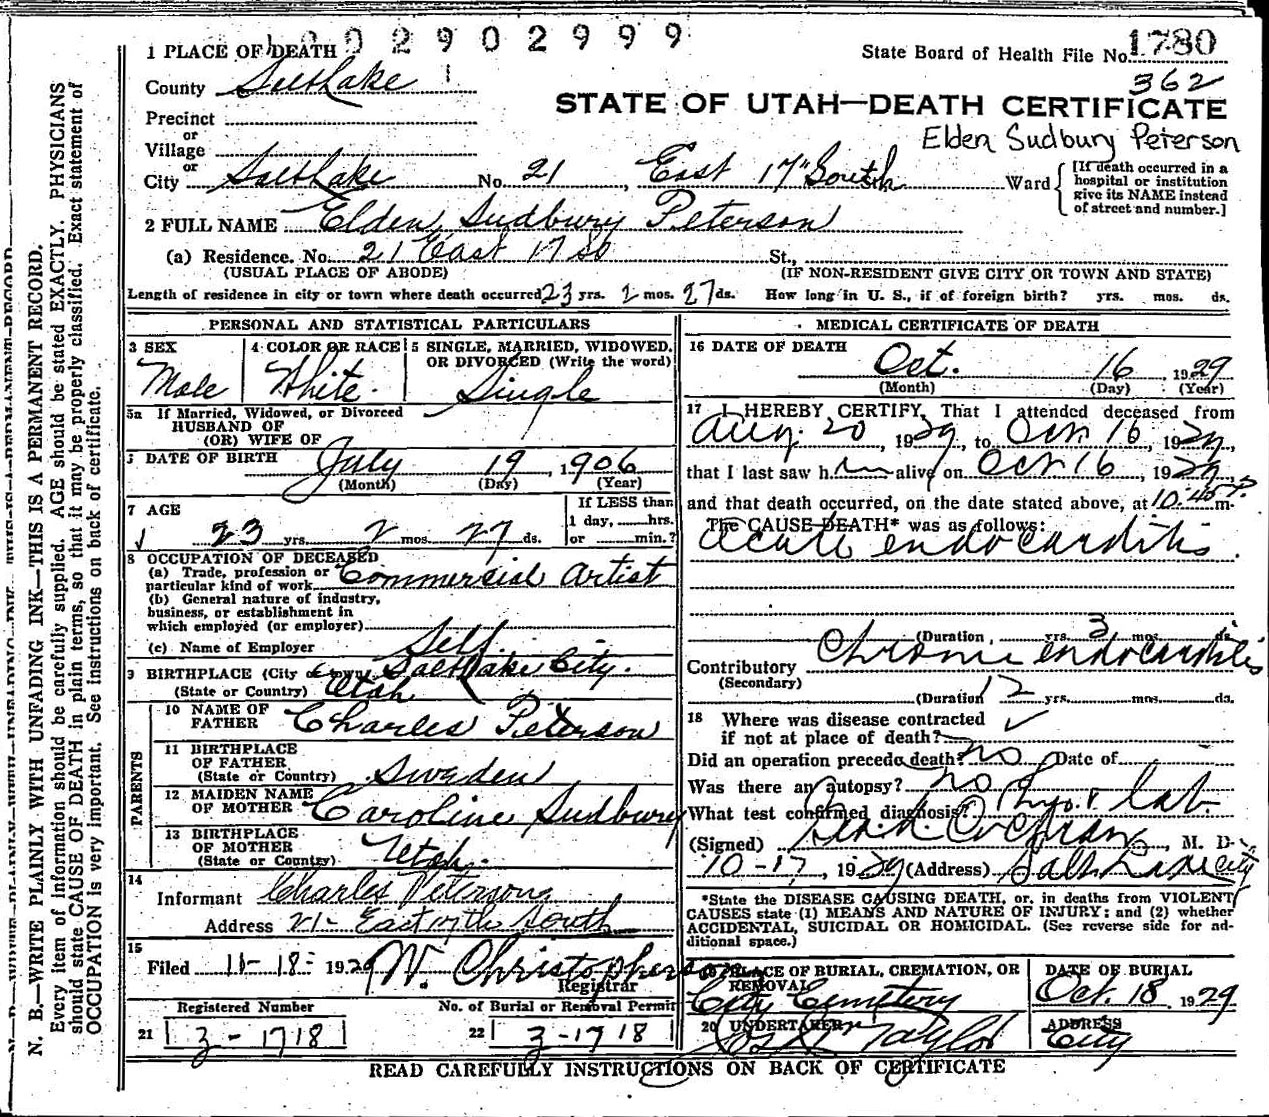 1 PLACE OF DEATH 02902999
State Board of Health File No. 1780
362
County Salt Lake
STATE OF UTAH—DEATH CERTIFICATE
Precinct
or
Village
Elden Sudbury Peterson
or
City Salt Lake No. 21, East 17" South Ward
[If death occurred in a
hospital or institution
give its NAME instead
of street and number.]
2 FULL NAME Elden Sudbury Peterson
(a) Residence. No. 21 East 17 So St.,
(USUAL PLACE OF ABODE) (IF NON-RESIDENT GIVE CITY OR TOWN AND STATE)
Length of residence in city or town where death occurred 23 yrs. 2 mos. 27 ds. How long in U. S., if of foreign birth? yrs. mos. ds.
PERSONAL AND STATISTICAL PARTICULARS
3 SEX Male
4 COLOR OR RACE White.
5 SINGLE, MARRIED, WIDOWED.
OR DIVORCED (Write the word)
Single
5a If Married, Widowed, or Divorced
HUSBAND OF
(OR) WIFE OF
DATE OF BIRTH July 19, 1906
(Month) (Day) (Year)
7 AGE
23 yrs. 2 mos. 27 ds.
If LESS than
1 day, hrs.
or min.?
8 OCCUPATION OF DECEASED
(a) Trade, profession or
particular kind of work Commercial Artist
(b) General nature of industry,
business, or establishment in
which employed (or employer)
(c) Name of Employer Self.
9 BIRTHPLACE (City or town) Salt Lake City.
(State or Country) Utah
PARENTS
10 NAME OF
FATHER Charles Peterson
11 BIRTHPLACE
OF FATHER
(State or Country) Sweden
12 MAIDEN NAME
OF MOTHER Caroline Sudbury
13 BIRTHPLACE
OF MOTHER
(State or Country) Utah.
14
Informant Charles Peterson
Address 21- East 17th South
15
Filed 11-18- 1929 W. Christopherson
Registrar
Registered Number No. of Burial or Removal Permit
21 3-1718 22 3-1718
MEDICAL CERTIFICATE OF DEATH
16 DATE OF DEATH
Oct. 16 1929
(Month) (Day) (Year)
17 I HEREBY CERTIFY, That I attended deceased from
Aug. 20, 1929, to Oct 16, 1929,
that I last saw him alive on Oct 16, 1929
and that death occurred, on the date stated above, at 10:40 P. m.
The CAUSE DEATH* was as follows:
Acute endocarditis.
(Duration yrs. 3 mos. ds.
Contributory Chronic endocarditis
(Secondary)
(Duration 12 yrs. mos. ds.
18 Where was disease contracted
if not at place of death?
Did an operation precede death? no Date of
Was there an autopsy? no
What test confirmed diagnosis? Phys. & Lab.
(Signed) Cochran, M. D.
10-17, 1929 (Address) Salt Lake City
*State the DISEASE CAUSING DEATH, or, in deaths from VIOLENT
CAUSES state (1) MEANS AND NATURE OF INJURY: and (2) whether
ACCIDENTAL, SUICIDAL OR HOMICIDAL. (See reverse side for ad-
ditional space.)
19 PLACE OF BURIAL, CREMATION, OR
REMOVAL
City Cemetery
DATE OF BURIAL
Oct. 18 1929
20 UNDERTAKER Taylor
ADDRESS
City
READ CAREFULLY INSTRUCTIONS ON BACK OF CERTIFICATE
N. B.—WRITE PLAINLY WITH UNFADING INK—THIS IS A PERMANENT RECORD.
Every item of information should be carefully supplied. AGE should be stated EXACTLY. PHYSICIANS
should state CAUSE OF DEATH in plain terms, so that it may be properly classified. Exact statement of
OCCUPATION is very important. See instructions on back of certificate.